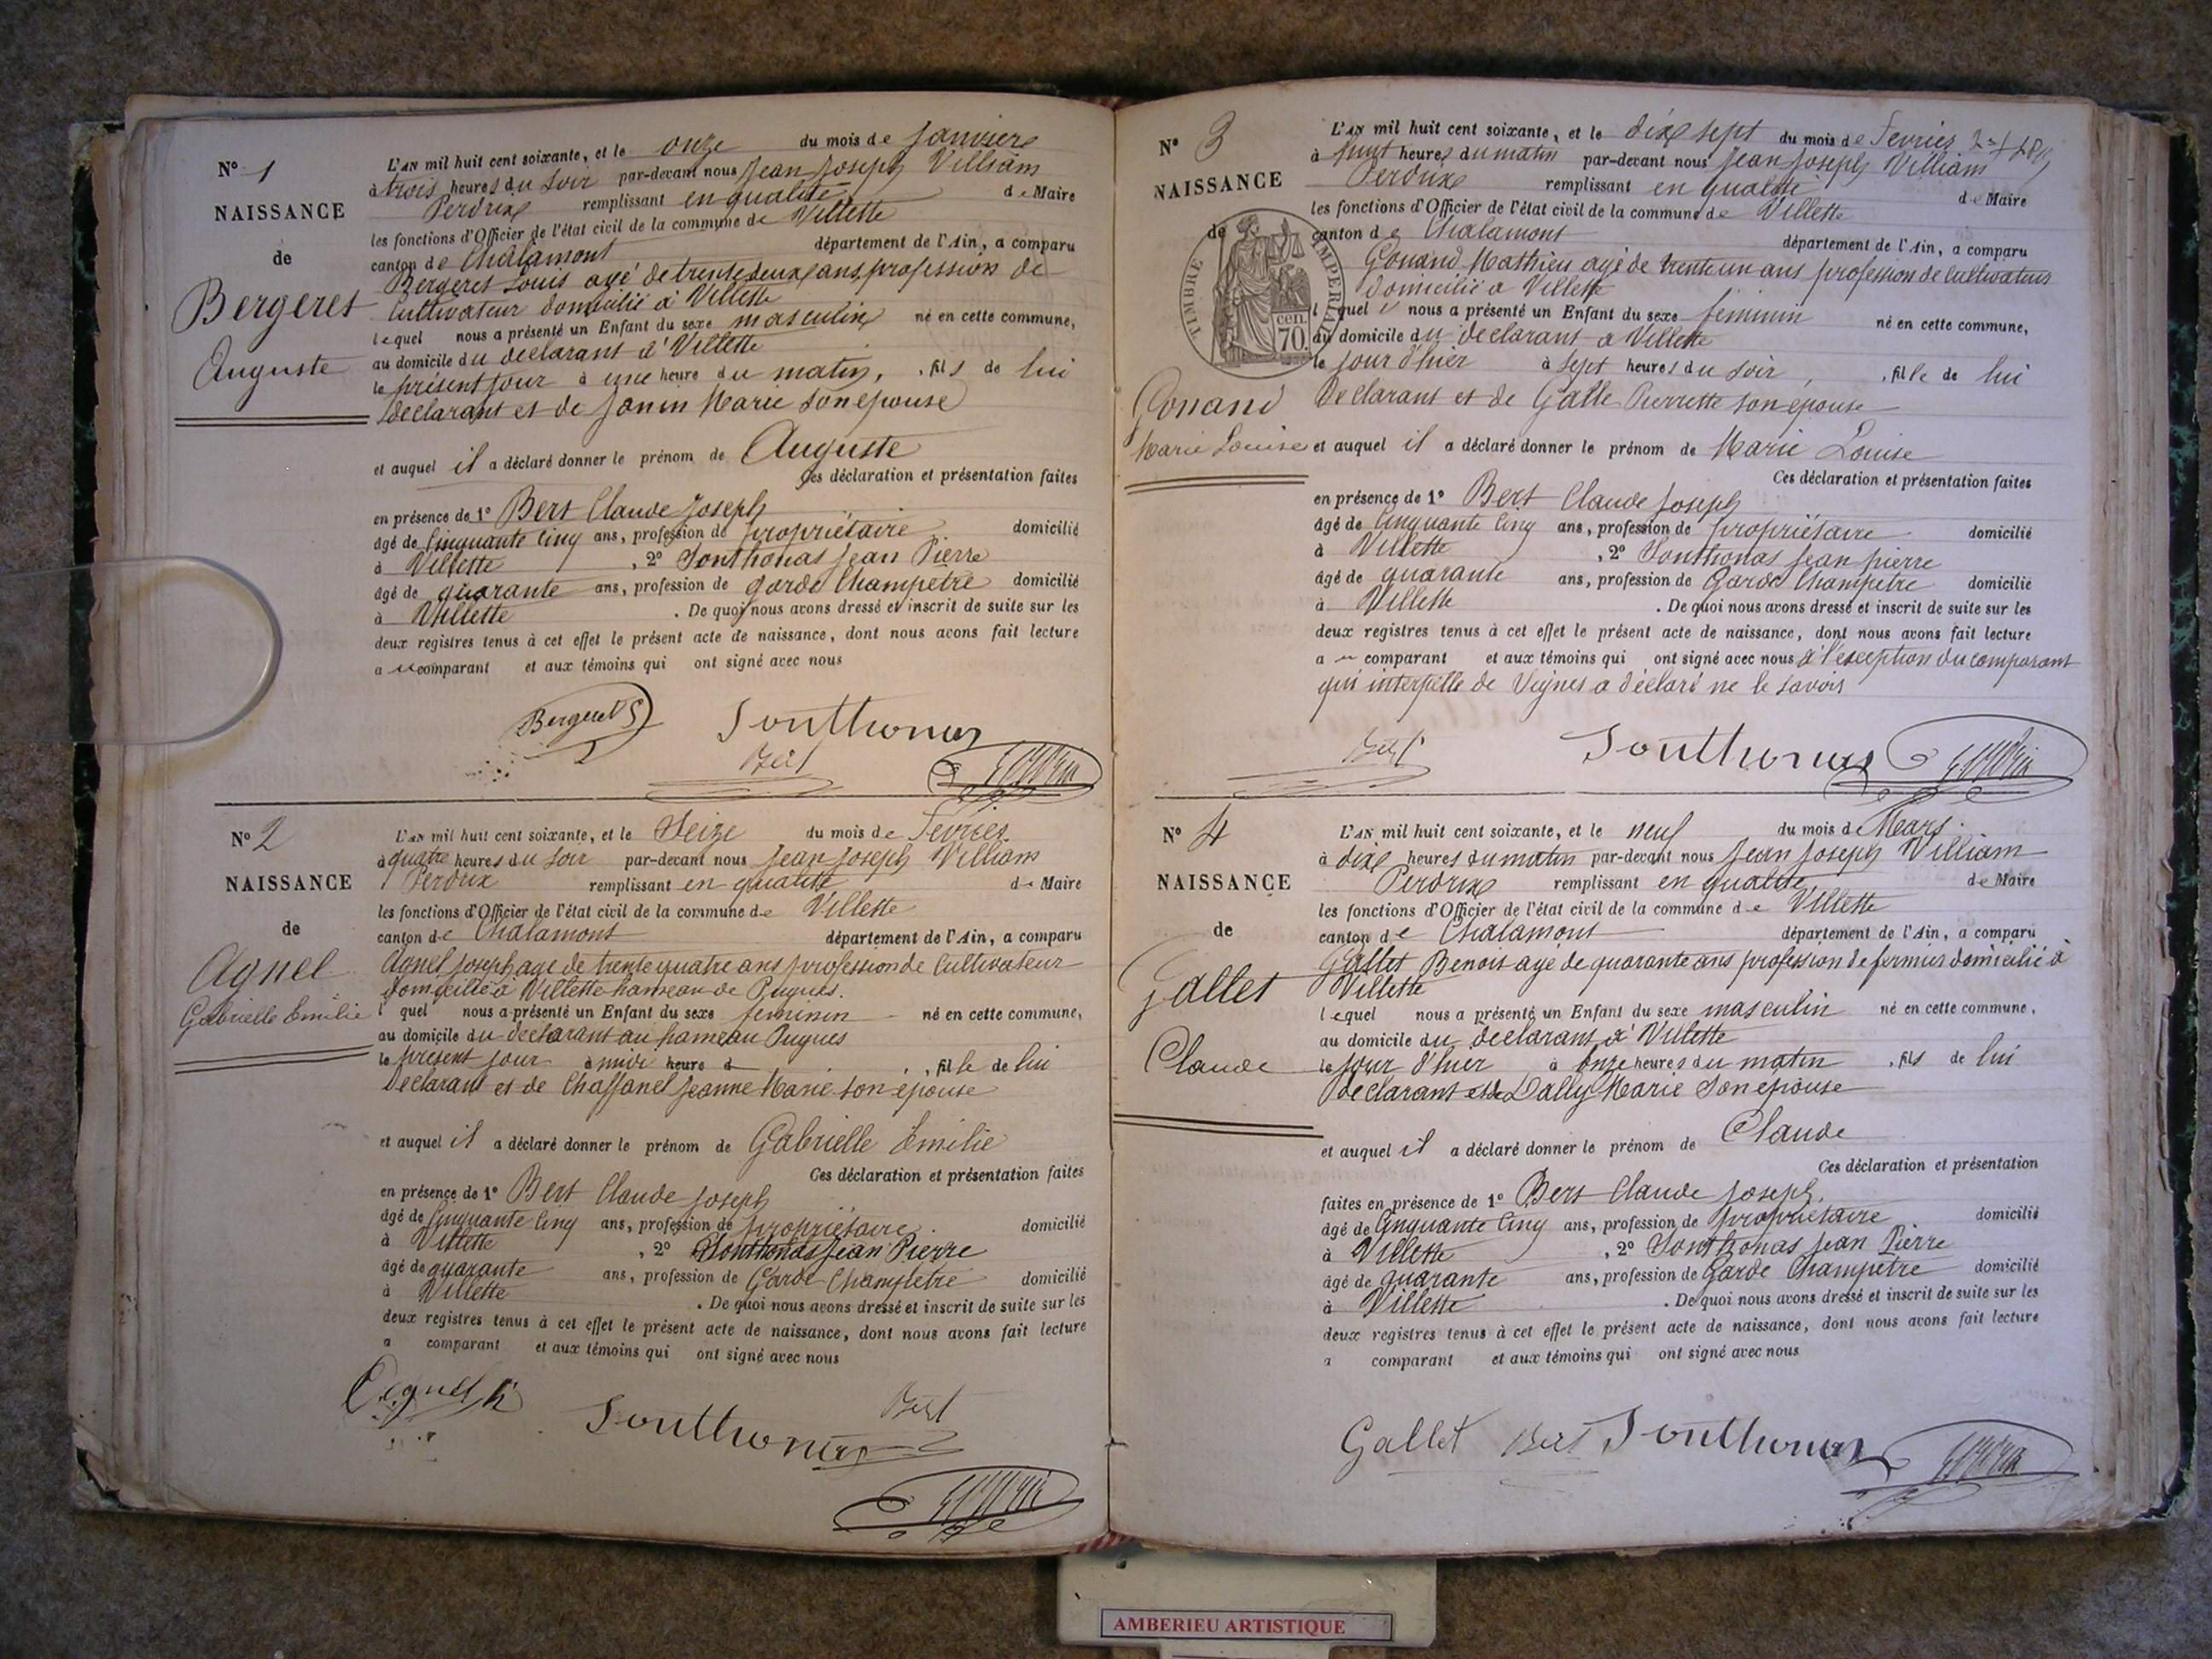 N° 1
NAISSANCE
de
Bergeret
Auguste
L'AN mil huit cent soixante, et le onze du mois de Janviere
à trois heures du Soir par-devant nous Jean Joseph William
Perdrix remplissant en qualité de Maire
les fonctions d'Officier de l'état civil de la commune de Villette
canton de Chalamont département de l'Ain, a comparu
Bergeret Louis agé de trente deux ans, profession de
Cultivateur domicilié à Villette
lequel nous a présenté un Enfant du sexe masculin né en cette commune,
au domicile du déclarant à Villette
le présent jour à une heure du matin, fils de lui
déclarant et de Janin Marie son épouse
et auquel il a déclaré donner le prénom de Auguste
Ces déclaration et présentation faites
en présence de 1° Bert Claude Joseph
âgé de Cinquante Cinq ans, profession de propriétaire domicilié
à Villette , 2° Sonthonas Jean Pierre
âgé de quarante ans, profession de garde Champetre domicilié
à Villette . De quoi nous avons dressé et inscrit de suite sur les
deux registres tenus à cet effet le présent acte de naissance, dont nous avons fait lecture
au comparant et aux témoins qui ont signé avec nous
Bergeret
Sonthonas
Bert
N° 2
NAISSANCE
de
Agnel
Gabrielle Emilie
L'AN mil huit cent soixante, et le Seize du mois de Fevrier
à quatre heures du Soir par-devant nous Jean Joseph William
Perdrix remplissant en qualité de Maire
les fonctions d'Officier de l'état civil de la commune de Villette
canton de Chalamont département de l'Ain, a comparu
Agnel Joseph age de trente quatre ans profession de Cultivateur
domicilié à Villette hameau de Pugues.
l quel nous a présenté un Enfant du sexe feminin né en cette commune,
au domicile du déclarant au hameau Pugues
le present jour à midi heure d , fille de lui
Declarant et de Chaffanel Jeanne Marie son épouse
et auquel il a déclaré donner le prénom de Gabrielle Emilie
Ces déclaration et présentation faites
en présence de 1° Bert Claude Joseph
âgé de Cinquante Cinq ans, profession de propriétaire. domicilié
à Villette , 2° Sonthonas Jean Pierre
âgé de quarante ans, profession de Garde Champetre domicilié
à Villette . De quoi nous avons dressé et inscrit de suite sur les
deux registres tenus à cet effet le présent acte de naissance, dont nous avons fait lecture
a comparant et aux témoins qui ont signé avec nous
Agnel
Sonthonas
Bert
N° 3
NAISSANCE
de
TIMBRE IMPERIAL
cen.
70.
Gonand
Marie Louise
L'AN mil huit cent soixante, et le dix sept du mois de Fevrier
à huit heures du matin par-devant nous Jean Joseph William
Perdrix remplissant en qualité de Maire
les fonctions d'Officier de l'état civil de la commune de Villette
canton de Chalamont département de l'Ain, a comparu
Gonand Mathieu agé de trente un ans profession de Cultivateur
domicilié à Villette
l quel nous a présenté un Enfant du sexe féminin né en cette commune,
au domicile du déclarant à Villette
le jour d'hier à sept heures du soir , fille de lui
Declarant et de Galle Pierrette son epouse
et auquel il a déclaré donner le prénom de Marie Louise
Ces déclaration et présentation faites
en présence de 1° Bert Claude Joseph
âgé de Cinquante Cinq ans, profession de propriétaire domicilié
à Villette , 2° Sonthonas Jean pierre
âgé de quarante ans, profession de Garde Champetre domicilié
à Villette . De quoi nous avons dressé et inscrit de suite sur les
deux registres tenus à cet effet le présent acte de naissance, dont nous avons fait lecture
au comparant et aux témoins qui ont signé avec nous à l'exception du comparant
qui interpellé de signer a déclaré ne le savoir
Bert
Sonthonas
N° 4
NAISSANCE
de
Gallet
Claude
L'AN mil huit cent soixante, et le neuf du mois de Mars.
à dix heures du matin par-devant nous Jean Joseph William
Perdrix remplissant en qualité de Maire
les fonctions d'Officier de l'état civil de la commune de Villette
canton de Chalamont département de l'Ain, a comparu
Gallet Benoit age de quarante ans profession de fermier domicilié à
Villette
lequel nous a présenté un Enfant du sexe masculin né en cette commune,
au domicile du déclarant à Villette
le jour d'hier à onze heures du matin , fils de lui
declarant et de Dally Marie Son epouse
et auquel il a déclaré donner le prénom de Claude
Ces déclaration et présentation
faites en présence de 1° Bert Claude Joseph.
âgé de Cinquante Cinq ans, profession de propriétaire domicilié
à Villette , 2° Sonthonas Jean Pierre
âgé de quarante ans, profession de Garde Champetre domicilié
à Villette . De quoi nous avons dressé et inscrit de suite sur les
deux registres tenus à cet effet le présent acte de naissance, dont nous avons fait lecture
a comparant et aux témoins qui ont signé avec nous
Gallet Bert Sonthonas
AMBERIEU ARTISTIQUE